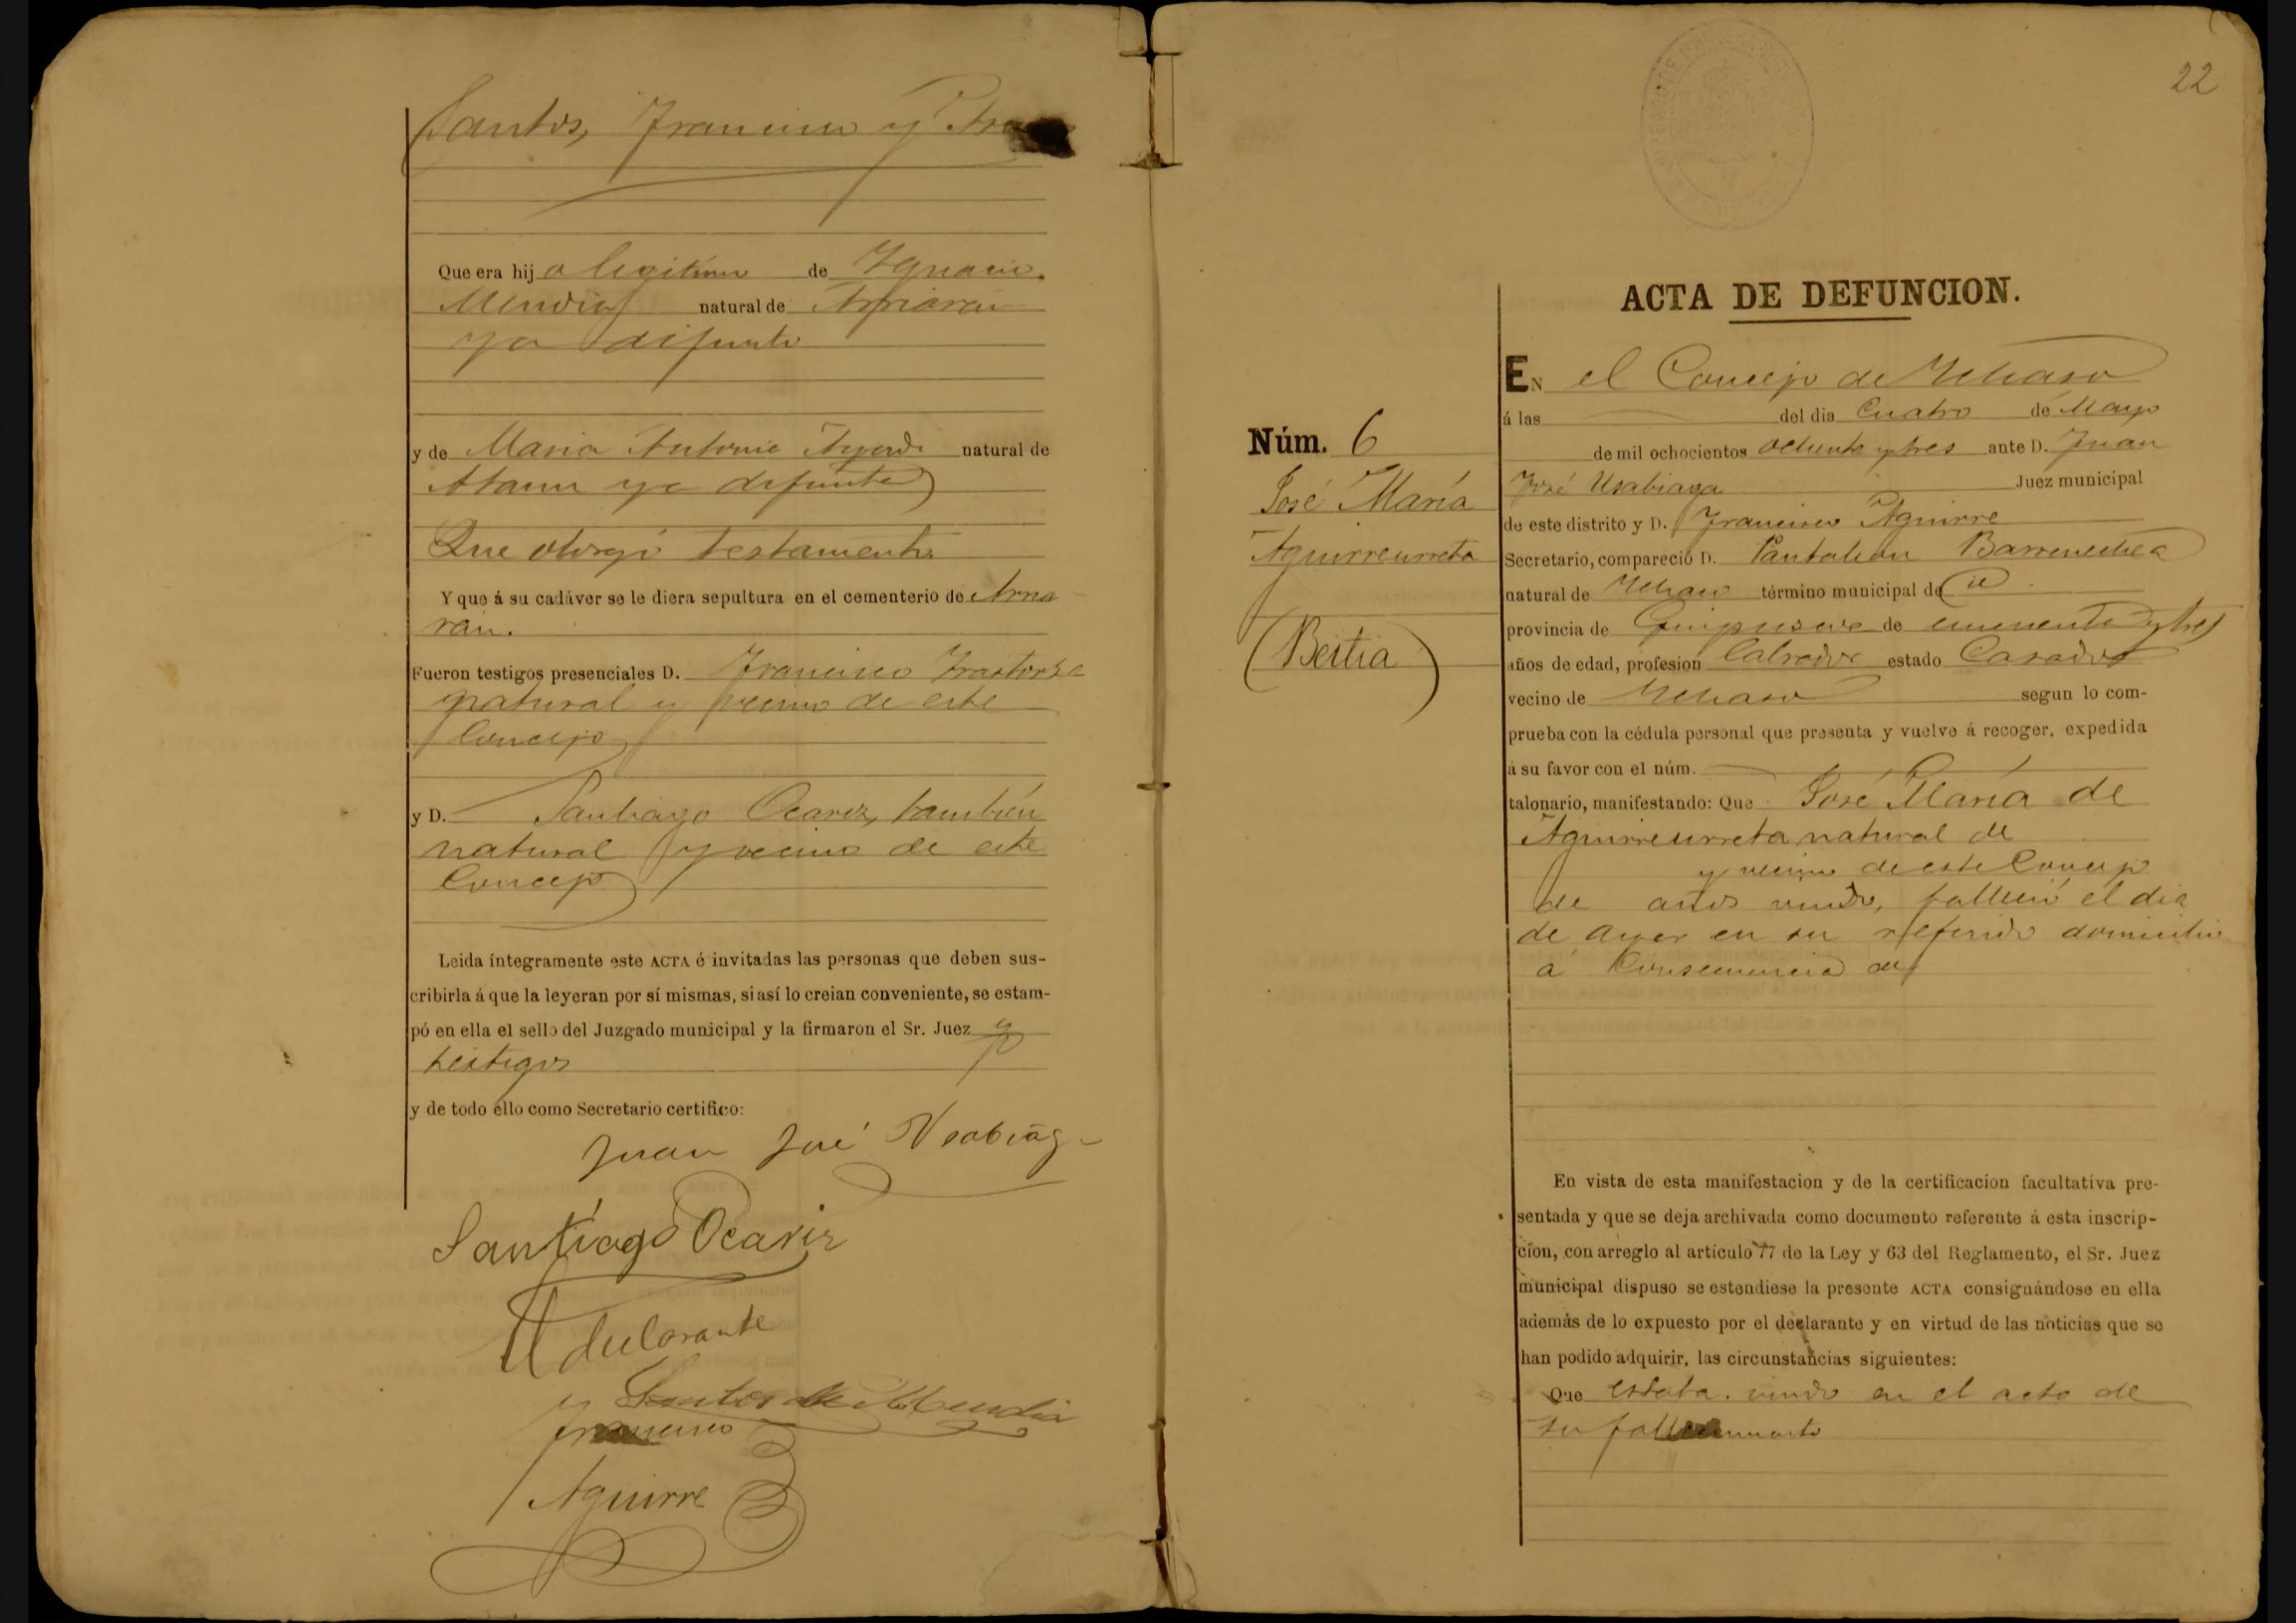 Santos, Francisco y
Que era hijo legítimo de Ygnacio
Mendia natural de Arriaran
ya difunto
y de Maria Antonia Ayerdi natural de
Ataun ya difunta
Que otorgó testamento
Y que á su cadáver se le diera sepultura en el cementerio de Arria
ran.
Fueron testigos presenciales D. Francisco Irastorza
natural y vecino de este
Concejo
y D. Santiago Ocariz, también
natural y vecino de este
Concejo
Leida íntegramente este ACTA é invitadas las personas que deben sus-
cribirla á que la leyeran por sí mismas, si así lo creian conveniente, se estam-
pó en ella el sello del Juzgado municipal y la firmaron el Sr. Juez y
testigos
y de todo ello como Secretario certifico:
Juan José Usabiaga
Santiago Ocariz
El declarante
Santos de Mendia
Francisco
Aguirre
22
ACTA DE DEFUNCION.
EN el Concejo de Ychaso
á las del dia Cuatro de Mayo
de mil ochocientos ochenta y tres ante D. Juan
José Usabiaga Juez municipal
de este distrito y D. Francisco Aguirre
Secretario, compareció D. Pantaleon Barrenechea
natural de Ychaso término municipal de id
provincia de Guipuzcoa de cincuenta y tres
años de edad, profesion Labrador estado Casado
vecino de Ychaso segun lo com-
prueba con la cédula personal que presenta y vuelve á recoger, expedida
á su favor con el núm.
talonario, manifestando: Que José María de
Aguirreurreta natural de
y vecino de este Concejo
de años viudo, falleció el dia
de ayer en su referido domicilio
á consecuencia de
Núm. 6
José María
Aguirreurreta
(Beitia)
En vista de esta manifestacion y de la certificacion facultativa pre-
sentada y que se deja archivada como documento referente á esta inscrip-
cion, con arreglo al artículo 77 de la Ley y 63 del Reglamento, el Sr. Juez
municipal dispuso se estendiese la presente ACTA consignándose en ella
además de lo expuesto por el declarante y en virtud de las noticias que se
han podido adquirir, las circunstancias siguientes:
Que estaba viudo en el acto de
su fallecimiento